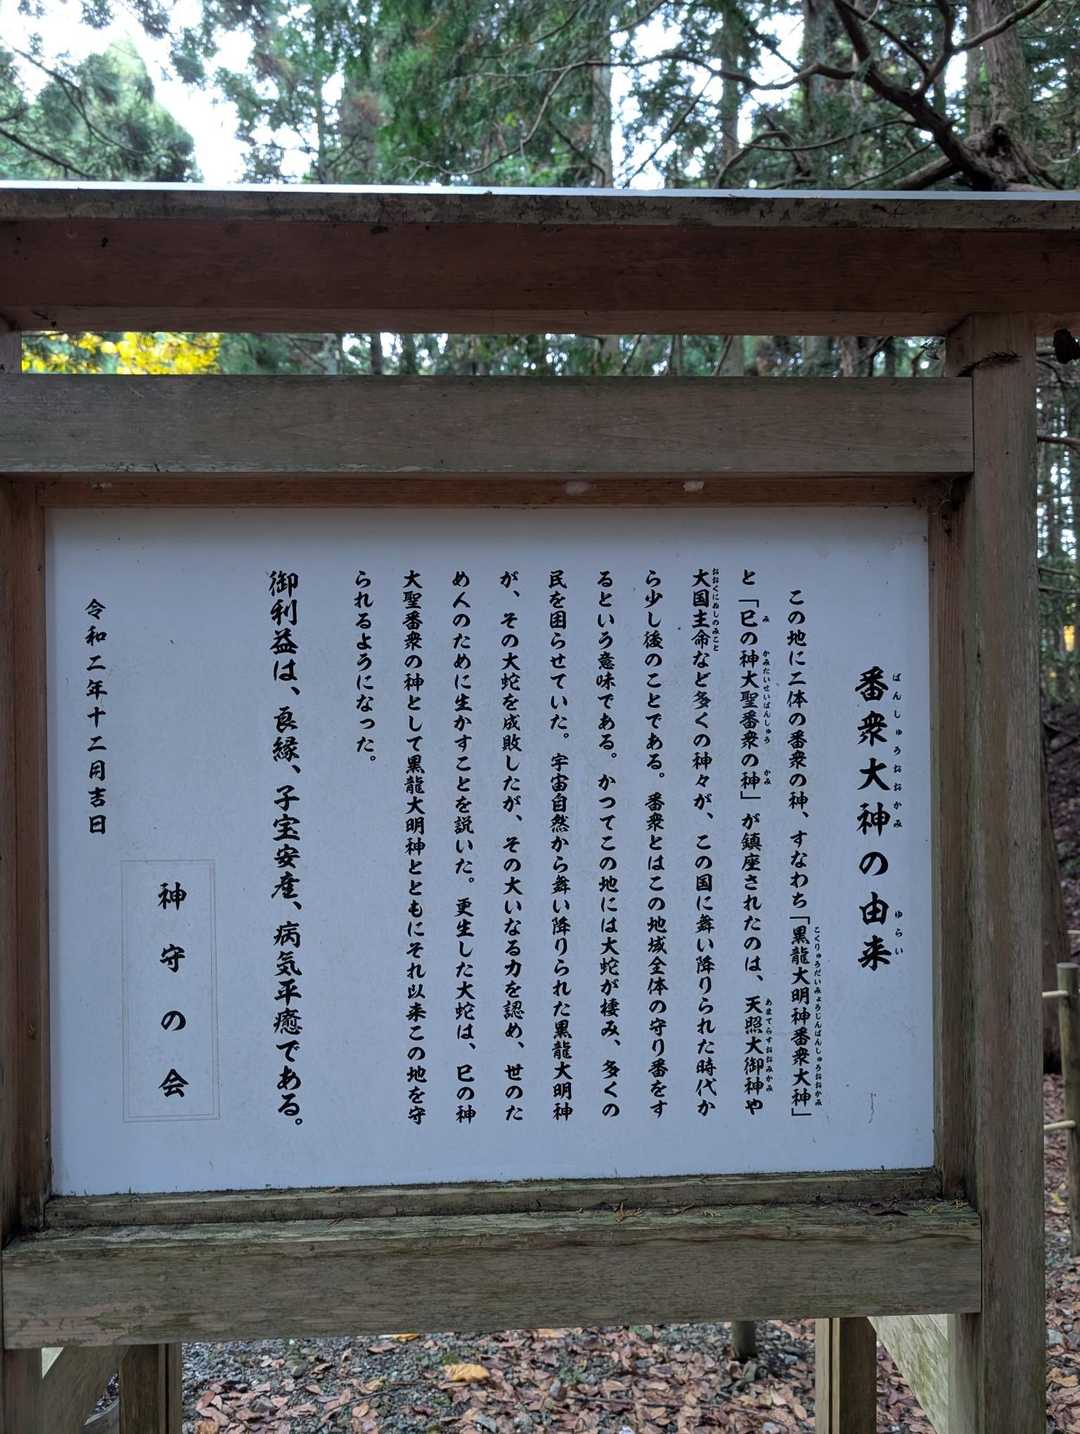 番衆大神の由来
この地に二体の番衆の神、すなわち「黒龍大明神番衆大神」
と「巳の神大聖番衆の神」が鎮座されたのは、天照大御神や
大国主命など多くの神々が、この国に舞い降りられた時代か
ら少し後のことである。番衆とはこの地域全体の守り番をす
るという意味である。かつてこの地には大蛇が棲み、多くの
民を困らせていた。宇宙自然から舞い降りられた黒龍大明神
が、その大蛇を成敗したが、その大いなる力を認め、世のた
め人のために生かすことを説いた。更生した大蛇は、巳の神
大聖番衆の神として黒龍大明神とともにそれ以来この地を守
られるようになった。
御利益は、良縁、子宝安産、病気平癒である。
令和二年十二月吉日
神守の会